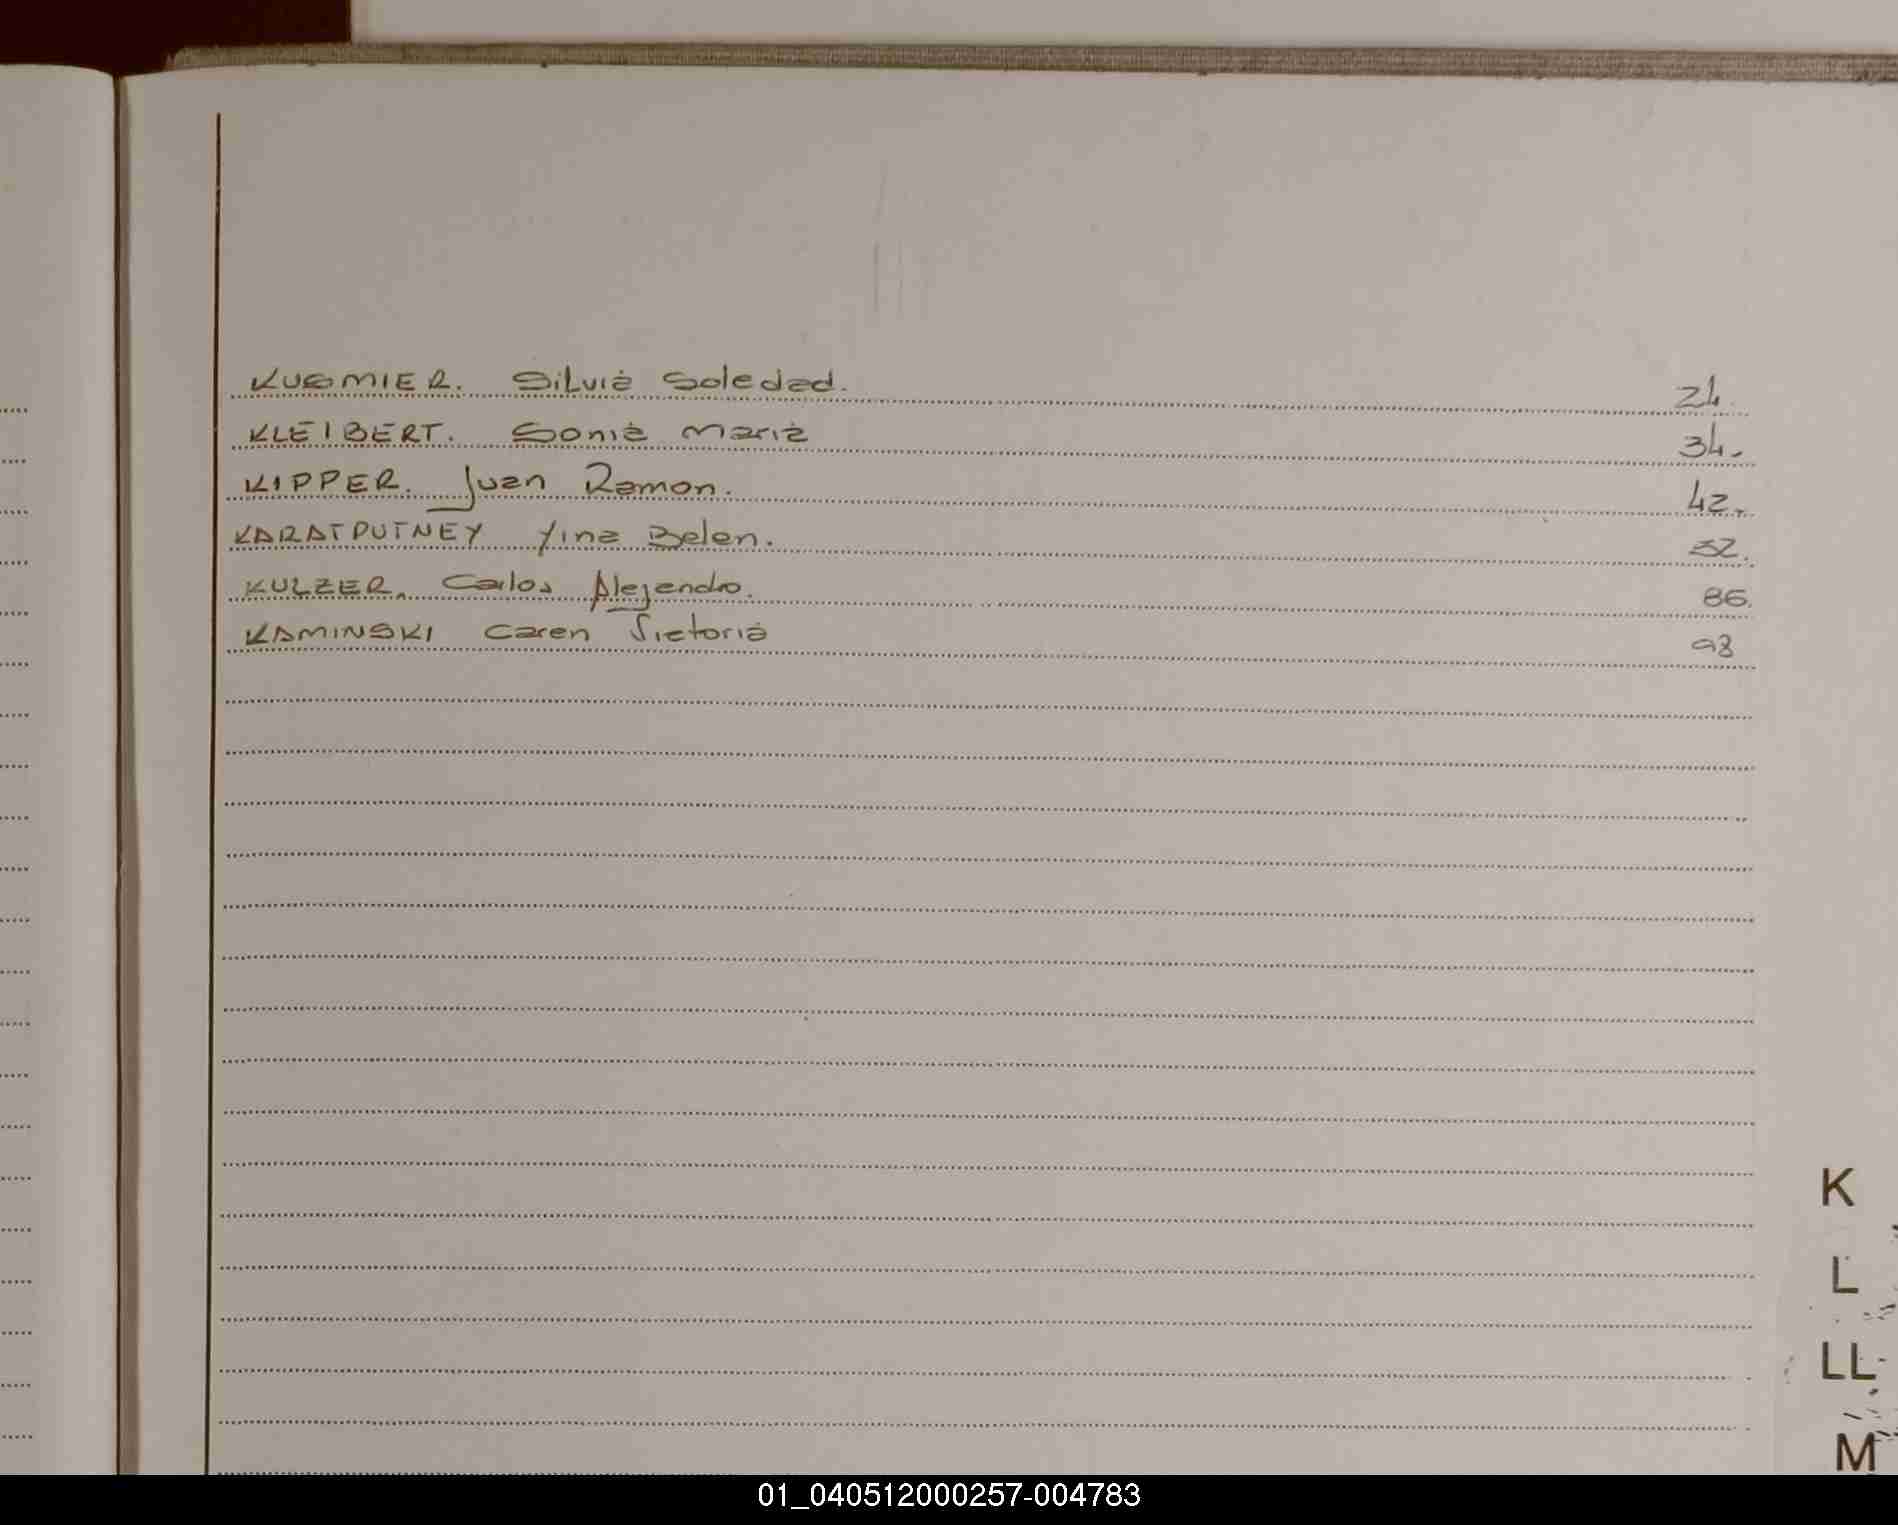 KUSMIER. Silvia Soledad. 24.
KLEIBERT. Sonia Maria 34.
KIPPER. Juan Ramon. 42.
KARATPUTNEY Yina Belen. 32.
KULZER. Carlos Alejandro. 86.
KAMINSKI Caren Victoria 98
K
L
LL
M
01_040512000257-004783